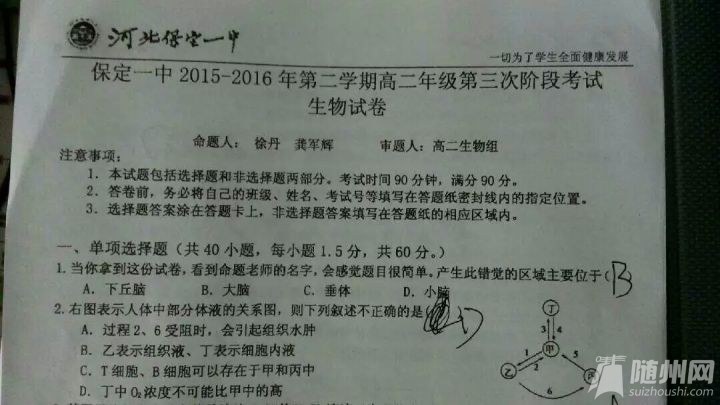 河北保定一中
一切为了学生全面健康发展
保定一中 2015-2016 年第二学期高二年级第三次阶段考试
生物试卷
命题人: 徐丹 龚军辉 审题人: 高二生物组
注意事项:
1. 本试题包括选择题和非选择题两部分。考试时间 90 分钟, 满分 90 分。
2. 答卷前, 务必将自己的班级、姓名、考试号等填写在答题纸密封线内的指定位置。
3. 选择题答案涂在答题卡上, 非选择题答案填写在答题纸的相应区域内。
一、单项选择题 (共 40 小题, 每小题 1.5 分, 共 60 分。)
1. 当你拿到这份试卷, 看到命题老师的名字, 会感觉题目很简单。产生此错觉的区域主要位于( B
A. 下丘脑 B. 大脑 C. 垂体 D. 小脑
2. 右图表示人体中部分体液的关系图, 则下列叙述不正确的是( )
A. 过程 2、6 受阻时, 会引起组织水肿
B. 乙表示组织液、丁表示细胞内液
C. T 细胞、B 细胞可以存在于甲和丙中
D. 丁中 O₂浓度不可能比甲中的高
丁
3 4
甲
1 2 5
乙
6
随州网
suizhoushi.com